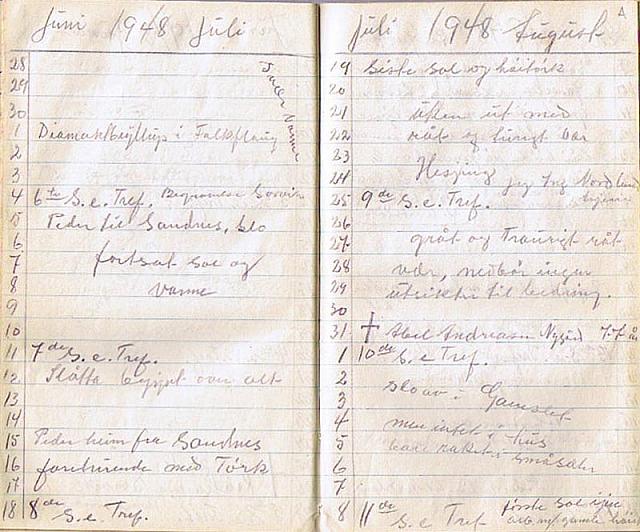 Juni 1948 Juli
28
29
30
1 Diamantbryllup i Falkflaug
2
3
4 6te S. e. Tref.
5 Peder til Sandnes, slo
6
7 fortsat sol og
8 varme
9
10
11 7de S. e. Tref.
12 Slåtta byrjet over alt
13
14
15 Peder heim fra Sandnes
16 fortsættende med Tørk
17
18 8de S. e. Tref.
Juli 1948 August
19 Siste sol og höitörk
20
21 Uken ut med
22 råt og surigt vær
23
24 Hesjing
25 9de S. e. Tref.
26
27 gråt og Traurigt råt
28 vær, nedbör ingen
29 utsikter til bedring.
30
31 † Abel Andreasen Nygård 77 år
1 10de S. e Tref.
2
3 slo av i Gamslet
4 men intet i hus
5 bare rakct i småsåtr
6
7
8 11de S. e Tref første sol igjen